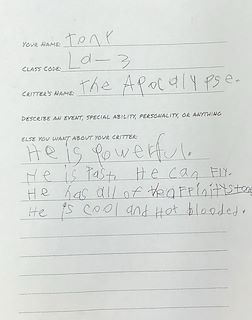 YOUR NAME: Tony
CLASS CODE: La-3
CRITTER'S NAME: The Apocalypse.
DESCRIBE AN EVENT, SPECIAL ABILITY, PERSONALITY, OR ANYTHING
ELSE YOU WANT ABOUT YOUR CRITTER:
He is powerful.
He is fast. He can fly.
He has all of
He is cool and Hot blooded.